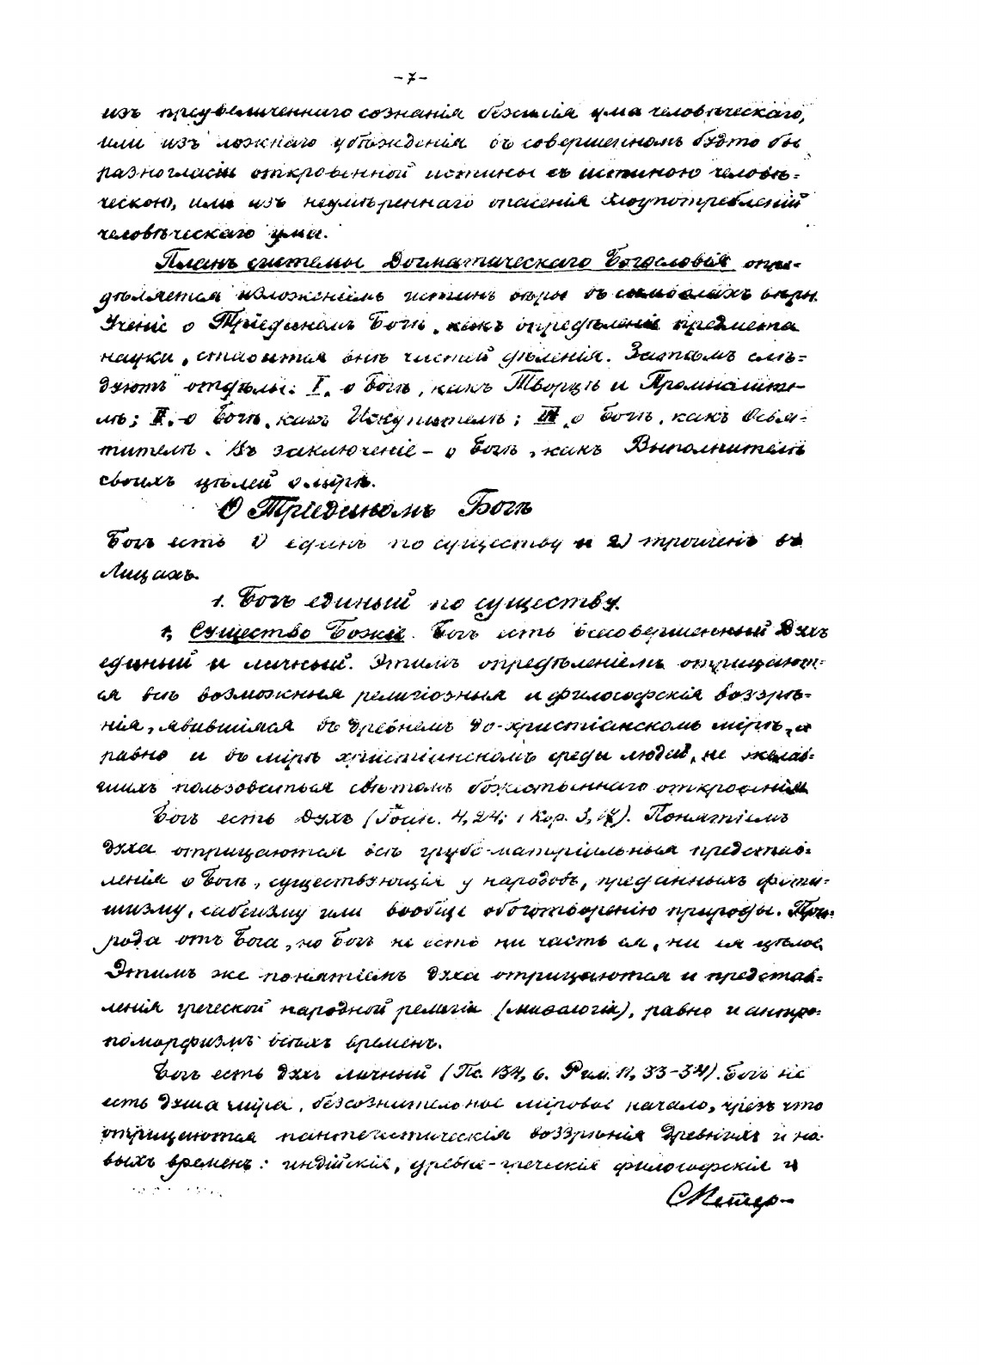 -7-
изъ преувеличеннаго сознанія безсилія ума человѣческаго,
или изъ ложнаго убѣжденія въ совершенномъ будто бы
разногласіи откровенной истины съ истиною человѣ-
ческою, или изъ неумѣреннаго опасенія злоупотребленій
человѣческаго ума.
Планъ системы Догматическаго Богословія опре-
дѣляется изложеніемъ истинъ вѣры въ символахъ вѣры.
Ученіе о Тріединомъ Богѣ, какъ опредѣленіе предмета
науки, ставится внѣ частей дѣленія. Затѣмъ слѣ-
дуютъ отдѣлы: I. о Богѣ, какъ Творцѣ и Промыслите-
лѣ; II. о Богѣ, какъ Искупителѣ; III. о Богѣ, какъ Освя-
тителѣ. Въ заключеніе – о Богѣ, какъ Выполнителѣ
своихъ цѣлей о мірѣ.
О Тріединомъ Богѣ
Богъ есть 1) единъ по существу и 2) троиченъ въ
Лицахъ.
1. Богъ единый по существу.
1, Существо Божіе. Богъ есть всесовершенный Духъ
единый и личный. Этимъ опредѣленіемъ отрицают-
ся всѣ возможныя религіозныя и философскія воззрѣ-
нія, явившіяся въ древнемъ до-христіанскомъ мірѣ, а
равно и въ мірѣ христіанскомъ среди людей, не желав-
шихъ пользоваться свѣтомъ божественнаго откровенія
Богъ есть Духъ (Іоан. 4, 24; 1 Кор. 3, 17). Понятіемъ
духа отрицаются всѣ грубо-матеріальныя представ-
ленія о Богѣ, существующія у народовъ, преданныхъ фети-
шизму, сабеизму или вообще обоготворенію природы. При-
рода отъ Бога, но Богъ не есть ни часть ея, ни ея цѣлое
Этимъ же понятіемъ духа отрицаются и представ-
ленія греческой народной религіи (миѳологіи), равно и антро-
поморфизмъ всѣхъ временъ.
Богъ есть духъ личный (Пс. 134, 6. Рим. 11, 33-34). Богъ не
есть душа міра, безсознательное міровое начало, чрезъ что
отрицаются пантеистическія воззрѣнія древнихъ и но-
выхъ временъ: индійскія, древне-греческія философскія и